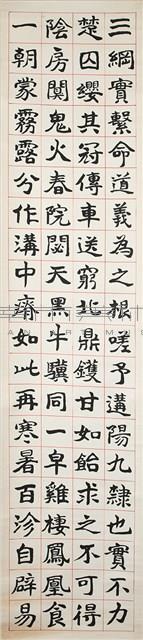 三綱實繫命道義為之根嗟予遘陽九隸也實不力
楚囚纓其冠傳車送窮北鼎鑊甘如飴求之不可得
陰房闃鬼火春院閟天黑牛驥同一皁雞棲鳳凰食
一朝蒙霧露分作溝中瘠如此再寒暑百沴自辟易